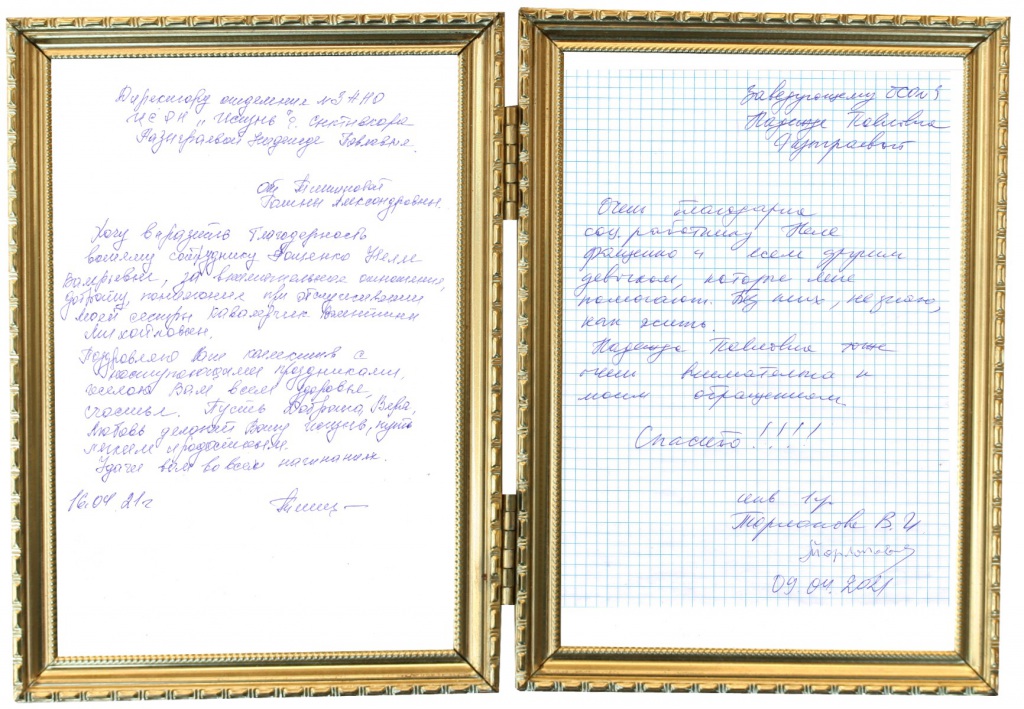 Директору отделения №3 АНО
"Жизнь" г. Сыктывкара
Надежде Павловне.
от
Галины Александровны.
Хочу выразить благодарность
вашему сотруднику Нелле
Валерьевне, за внимательное отношение,
доброту, понимание при обслуживании
моей сестры Валентины
Михайловны.
Поздравляю Ваш коллектив с
наступающими праздниками,
желаю Вам всем здоровья,
счастья. Пусть Доброта, Вера,
Любовь делают Вашу жизнь, путь
легким и радостным.
Удачи вам во всех начинаниях.
16.04.21г
Заведующему
Надежде Павловне
Очень благодарна
соц. работнику Неле
и всем другим
девочкам, которые мне
помогают. Без них, не знаю,
как жить.
Надежда Павловна тоже
очень внимательна к
моим обращениям
Спасибо!!!!
инв 1 гр.
В. И
09.04.2021